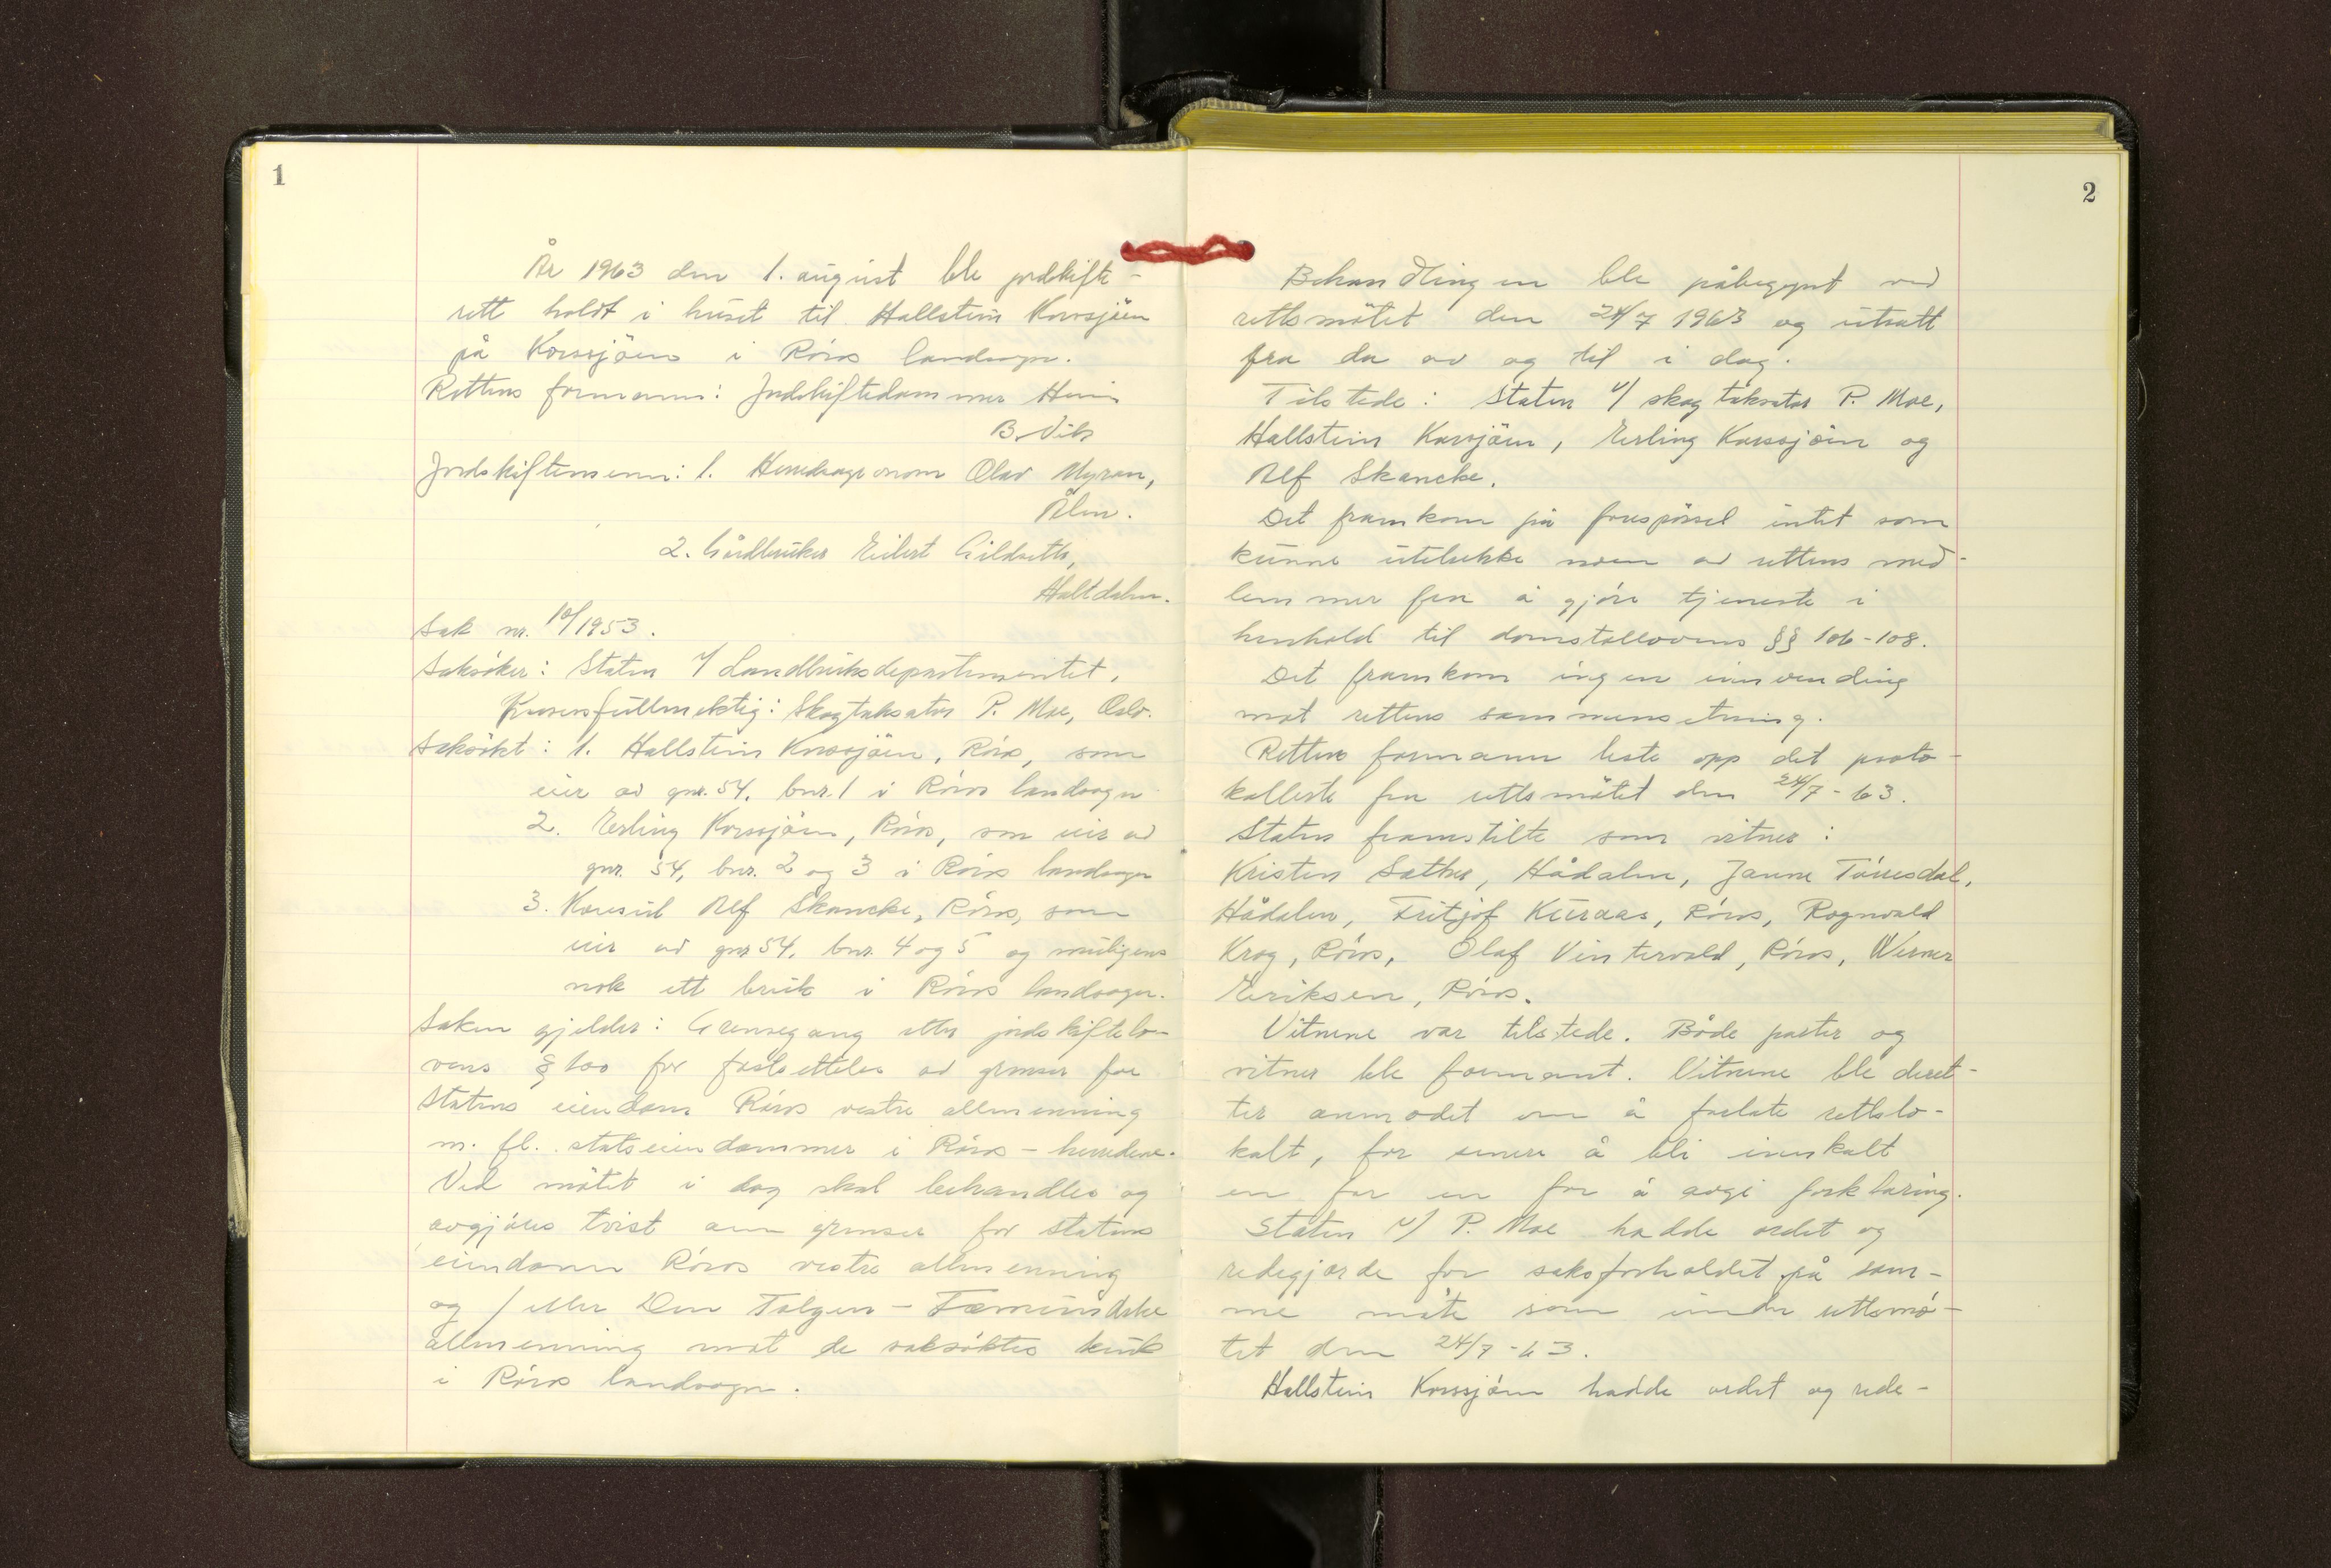 1
År 1963 den 1. august ble jordskifte-
rett holdt i huset til Hallstein Korssjöen
på Korssjöen i Röros landsogn.
Rettens formann: Jordskiftedommer
B. Vik
Jordskiftemenn: 1. Herredsagronom Olav Myran,
Ålen.
2. Gårdbruker Eilert Gildseth,
Haltdalen.
Sak nr. 10/1953.
Saksöker: Staten v/ Landbruksdepartementet.
Prosessfullmektig: Skogtaksator P. Moe, Oslo.
Saksökt: 1. Hallstein Korssjöen, Röros, som
eier av gnr. 54, bnr. 1 i Röros landsogn
2. Erling Korssjöen, Röros, som eier av
gnr. 54, bnr. 2 og 3 i Röros landsogn
3. Konsul Alf Skancke, Röros, som
eier av gnr 54, bnr. 4 og 5 og muligens
nok ett bruk i Röros landsogn.
Saken gjelder: Grensegang etter jordskiftelo-
vens § 100 for fastsettelse av grenser for
Statens eiendom Röros vestre allmenning
m. fl. statseiendommer i Röros-herredene.
Ved mötet i dag skal behandles og
avgjöres tvist om grenser for statens
eiendom Röros vestre allmenning
og / eller Den Tolgen-Fæmundske
allmenning mot de saksöktes bruk
i Röros landsogn.
2
Behandlingen ble påbegynt ved
rettsmötet den 24/7 1963 og utsatt
fra da av og til i dag.
Tilstede: Staten v/ skogtaksator P. Moe,
Hallstein Korssjöen, Erling Korssjöen og
Alf Skancke.
Det framkom på forespörsel intet som
kunne utelukke noen av rettens med-
lemmer fra å gjöre tjeneste i
henhold til domstollovens §§ 106-108.
Det framkom ingen innvending
mot rettens sammensetning.
Rettens formann leste opp det proto-
kollerte fra rettsmötet den 24/7-63.
Staten framstilte som vitner:
Kristen Sæther, Hådalen, Janne Törresdal,
Hådalen, Fritjof Kuraas, Röros, Rognvald
Krog, Röros, Olaf Vintervold, Röros, Werner
Eriksen, Röros.
Vitnene var tilstede. Både parter og
vitner ble formant. Vitnene ble deret-
ter anmodet om å forlate rettslo-
kalt, for senere å bli innkalt
en for en for å avgi forklaring.
Staten v/ P. Moe hadde ordet og
redegjorde for saksforholdet på sam-
me måte som under rettsmö-
tet den 24/7-63.
Hallstein Korssjöen hadde ordet og rede-